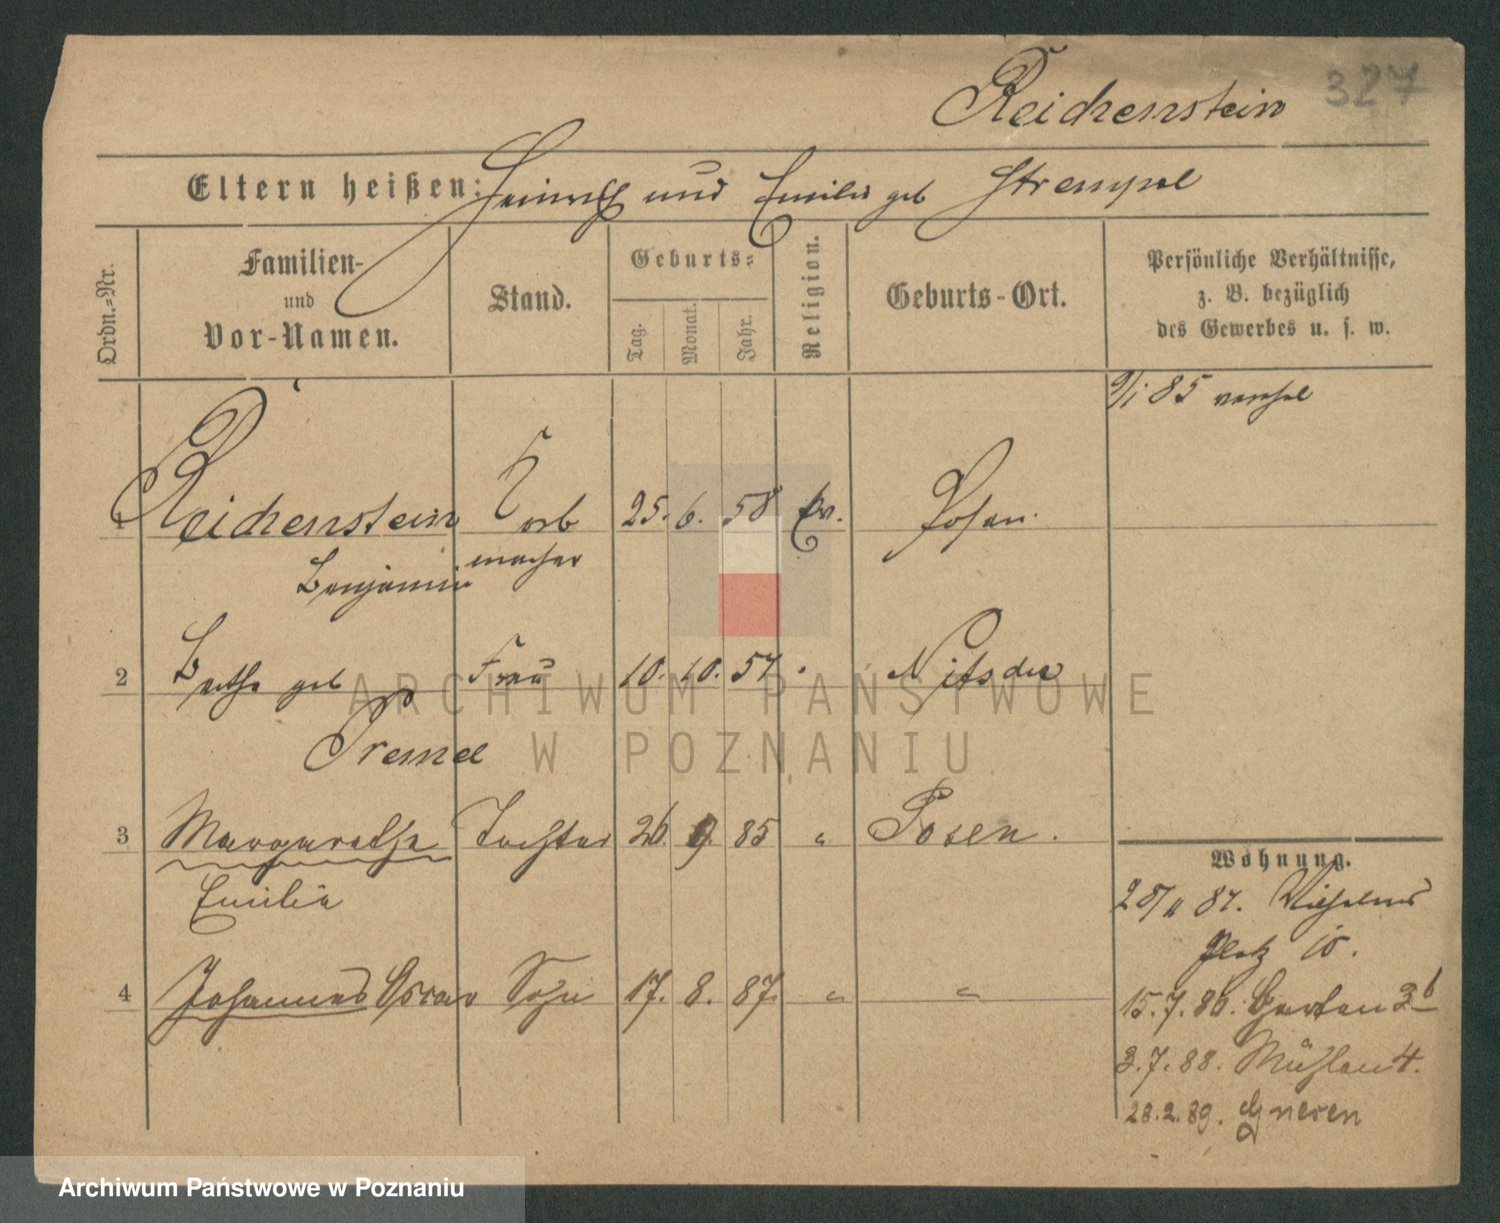 Reichenstein 327
Eltern heißen: Heinrich und Emilie geb Strempel
Ordn.-Nr.
Familien- und Vor-Namen.
Stand.
Geburts-
Tag. Monat. Jahr.
Religion.
Geburts-Ort.
Persönliche Verhältnisse, z. B. bezüglich des Gewerbes u. s. w.
9/1 85
1 Reichenstein Korb 25. 6. 58 Ev. Posen.
Benjamin macher
2 geb Frau 10. 10. 57 "
3 Margarethe Tochter 26. 9. 85 " Posen.
Emilie
4 Johannes Oscar Sohn 17. 8. 87 " "
Wohnung.
87. Wilhelms
platz 10.
15.7.86. Garten 3b
3.7.88. Mühlen 4.
28.2.89. Gnesen
ARCHIWUM PAŃSTWOWE
W POZNANIU
Archiwum Państwowe w Poznaniu